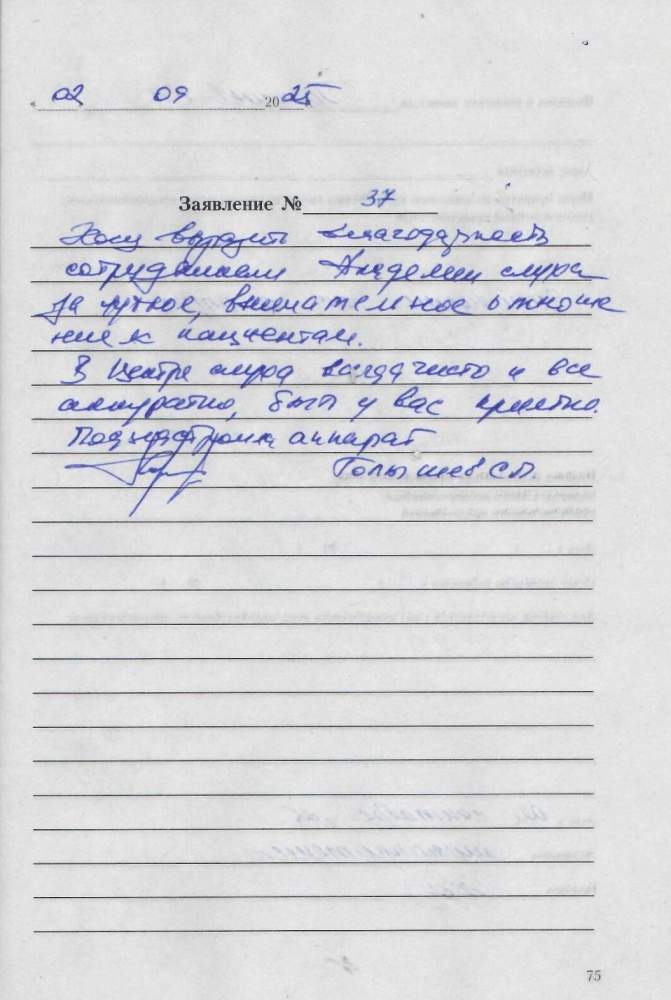 02 09 2025
Заявление № 37
Хочу выразить благодарность
сотрудникам Академии слуха
за чуткое, внимательное отноше
ние к пациентам.
В Центре слуха всегда чисто и все
аккуратно, быть у вас приятно.
Поднастроили аппарат
Голышев С.П.
75